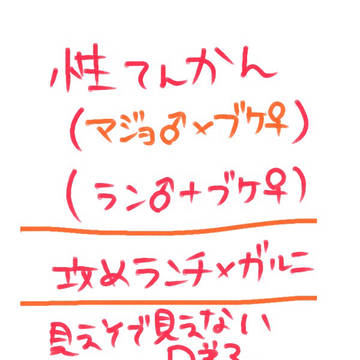 性てんかん
(マジョ♂×ブケ♀)
(ラン♂+ブケ♀)
攻めランチ×ガルニ
見えそで見えない